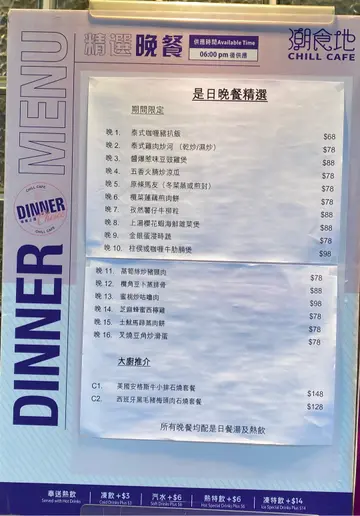 精選晚餐
供應時間Available Time
06:00 pm 後供應
潮食地
CHILL CAFE
DINNER MENU
CHILL CAFE
DINNER
CHILL CAFE
是日晚餐精選
期間限定
晚 1. 泰式咖喱豬扒飯 $68
晚 2. 泰式雞肉炒河 (乾炒/濕炒) $78
晚 3. 醬爆葱味豆豉雞煲 $88
晚 4. 五香火腩炒涼瓜 $78
晚 5. 原條馬友 (冬菜蒸或煎封) $78
晚 6. 欖菜蓮藕煎肉餅 $78
晚 7. 孜然薯仔牛柳粒 $88
晚 8. 上湯櫻花蝦海鮮雜菜煲 $88
晚 9. 金銀蛋浸時蔬 $78
晚 10. 柱侯或咖喱牛肋腩煲 $98
晚 11. 蒸籠絲炒豬頸肉 $78
晚 12. 欖角豆卜蒸排骨 $88
晚 13. 蜜桃炒咕嚕肉 $98
晚 14. 芝麻蜂蜜西檸雞 $78
晚 15. 土魷馬蹄蒸肉餅 $78
晚 16. 叉燒豆角炒滑蛋 $78
大廚推介
C1. 美國安格斯牛小排石燒套餐 $148
C2. 西班牙黑毛豬梅頭肉石燒套餐 $128
所有晚餐均配是日餐湯及熱飲
奉送熱飲
Served with Hot Drinks
凍飲+$3
Cold Drinks Plus $3
汽水+$6
Soft Drinks Plus $6
熱特飲+$6
Hot Special Drinks Plus $6
凍特飲+$14
Ice Special Drinks Plus $14